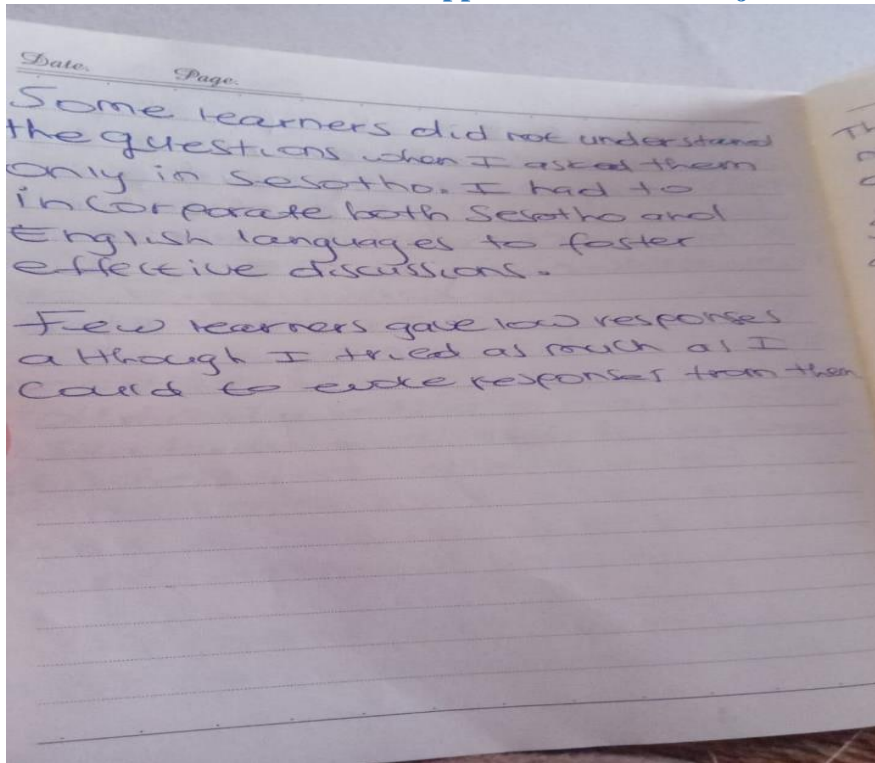 Date. Page.
Some learners did not understand
the questions when I asked them
only in Sesotho. I had to
incorporate both Sesotho and
English languages to foster
effective discussions.
Few learners gave low responses
although I tried as much as I
could to evoke responses from them
Th